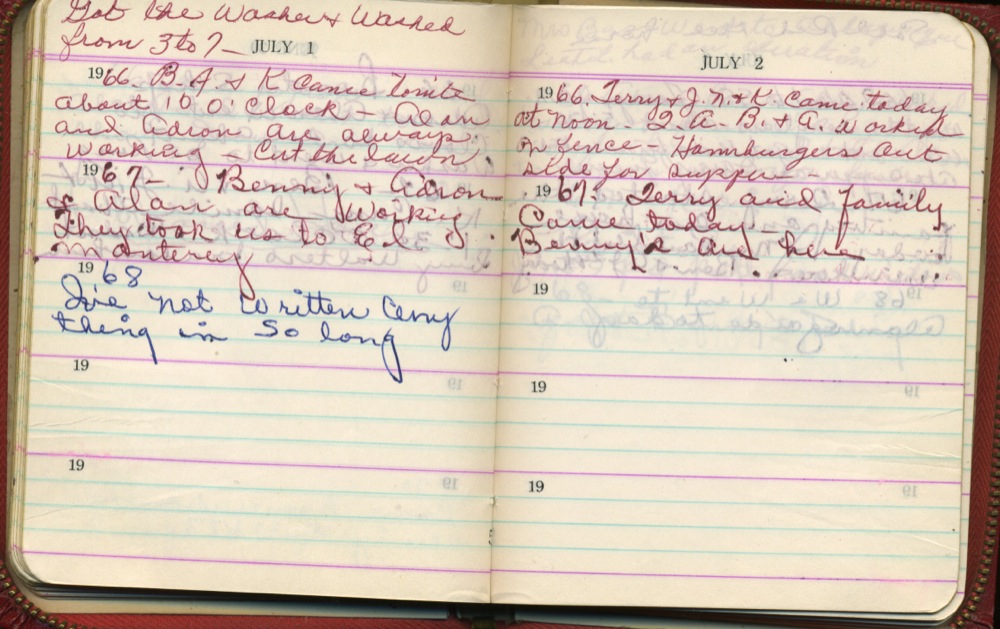 Got the Washer & Washed
from 3 to 7 —
JULY 1
1966. B. A. & K Came tonite
about 10 O'Clock — Alan
and Adron are always
working — Cut the lawn.
1967 — Benny & Adron
& Alan are Working
They took us to El
Monterey
1968
I've not written any
thing in so long
19
19
JULY 2
1966. Terry & J. N. & K. Came today
at noon — A. B. & A. worked
on fence — Hamburgers out
side for supper —
1967. Terry and Family
Came today —
Benny's are here
19
19
19